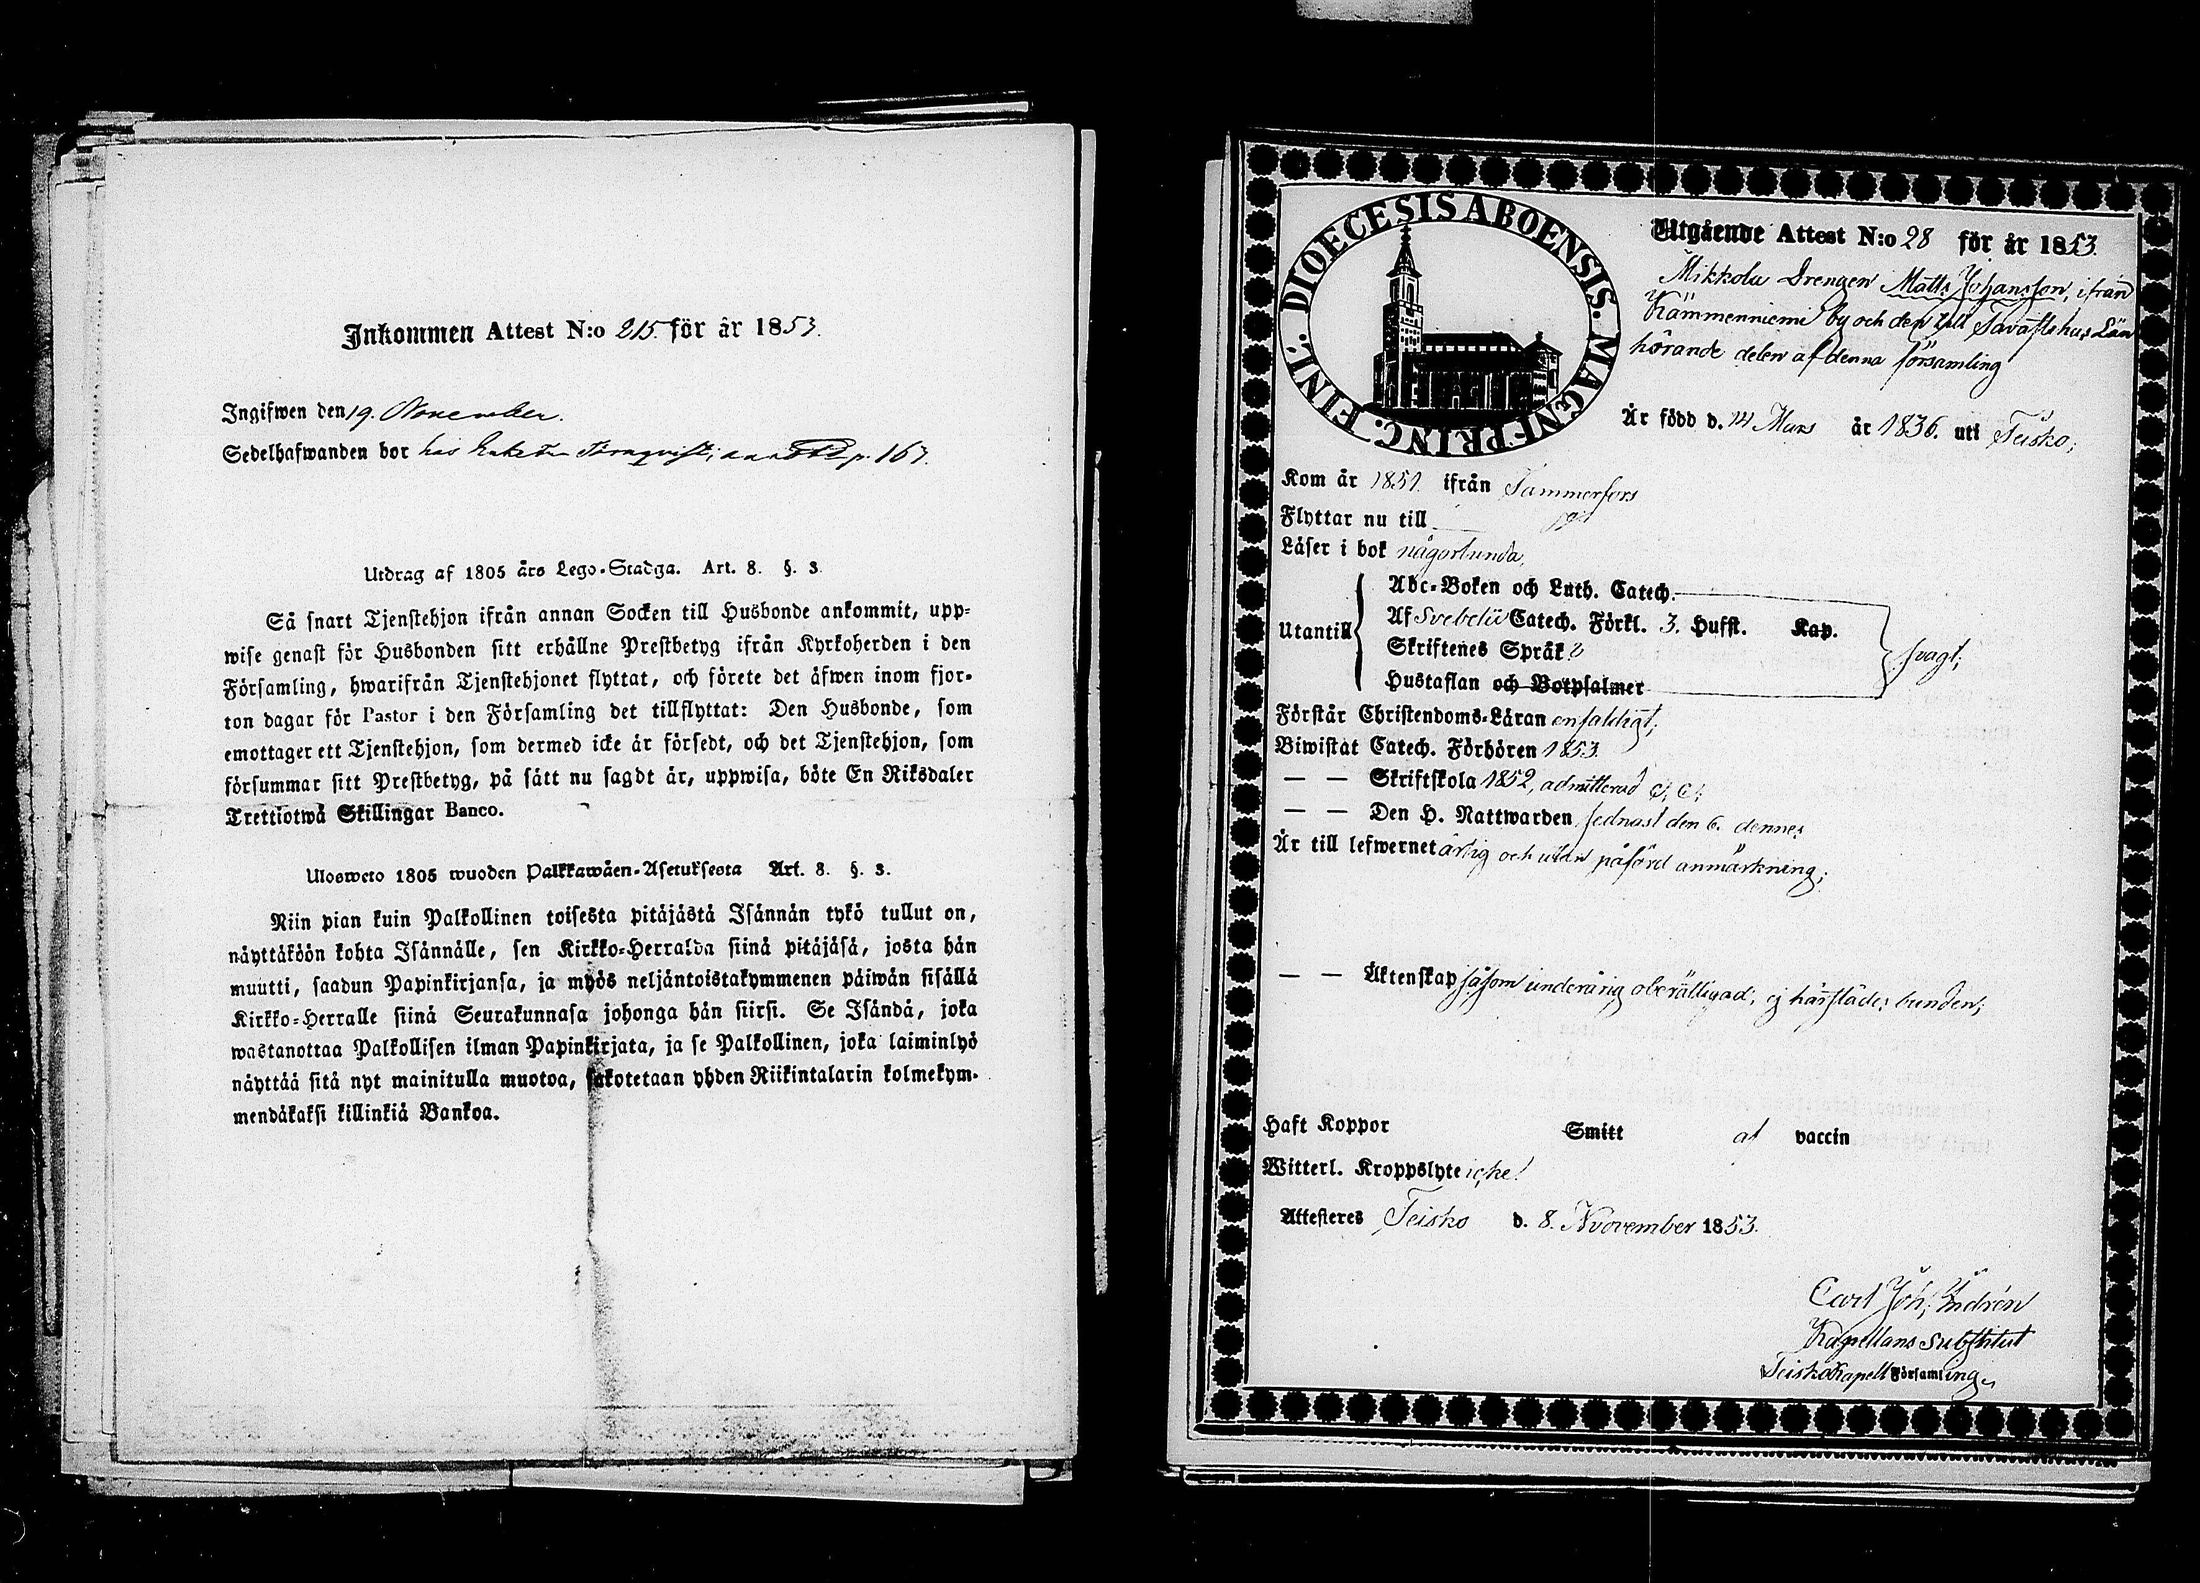 Inkommen Attest N:o 215. för år 1853.
Ingifwen den 19. November.
Sedelhafwanden bor hos p. 167.
Utdrag af 1805 års Lego-Stadga. Art. 8. §. 3.
Så snart Tjenstehjon ifrån annan Socken till Husbonde ankommit, upp-
wise genast för Husbonden sitt erhållne Prestbetyg ifrån Kyrkoherden i den
Församling, hwarifrån Tjenstehjonet flyttat, och förete det äfwen inom fjor-
ton dagar för Pastor i den Församling det tillflyttat: Den Husbonde, som
emottager ett Tjenstehjon, som dermed icke är försedt, och det Tjenstehjon, som
försummar sitt Prestbetyg, på sätt nu sagdt är, uppwisa, böte En Riksdaler
Trettiotwå Skillingar Banco.
Ulosweto 1805 wuoden Palkkawäen-Asetuksesta Art. 8. §. 3.
Niin pian kuin Palkollinen toisesta pitäjästä Isännän tykö tullut on,
näyttäköön kohta Isännälle, sen Kirkko-Herralda siinä pitäjäsä, josta hän
muutti, saadun Papinkirjansa, ja myös neljäntoistakymmenen päiwän sisällä
Kirkko-Herralle siinä Seurakunnasa johonga hän siirsi. Se Isändä, joka
wastanottaa Palkollisen ilman Papinkirjata, ja se Palkollinen, joka laiminlyö
näyttää sitä nyt mainitulla muotoa, sakotetaan yhden Riikintalarin kolmekym-
mendäkaksi killinkiä Bankoa.
DIOECESIS ABOENSIS. MAGNI PRINC. FINL.
Utgående Attest N:o 28 för år 1853.
Mikkola Drengen Matts Johansson, ifrån
Kämmenniemi by och den till Tavastehus Län
hörande delen af denna församling
Är född d. 14 Mars år 1836. uti Teisko;
Kom år 1851. ifrån Tammerfors
Flyttar nu till
Läser i bok någorlunda,
Utantill
Abc-Boken och Luth. Catech.
Af Svebelii Catech. Förkl. 3. Hufst. Kap.
Skriftenes Språk 2
Hustaflan och Botpsalmer
svagt;
Förstår Christendoms-Läran enfaldigt;
Biwistat Catech. Förhören 1853.
— — Skriftskola 1852, admitterad
— — Den H. Nattwarden sednast den 6. dennes
Är till lefwernet ärlig och utan påförd anmärkning;
— — Äktenskap såsom underårig oberättigad, ej härstädes bunden;
Haft Koppor Smitt af vaccin
Witterl. Kroppslyte icke!
Attesteres Teisko d. 8. November 1853.
Carl Joh. Indrén
Kapellans Substitut
Teisko Kapell Församling.